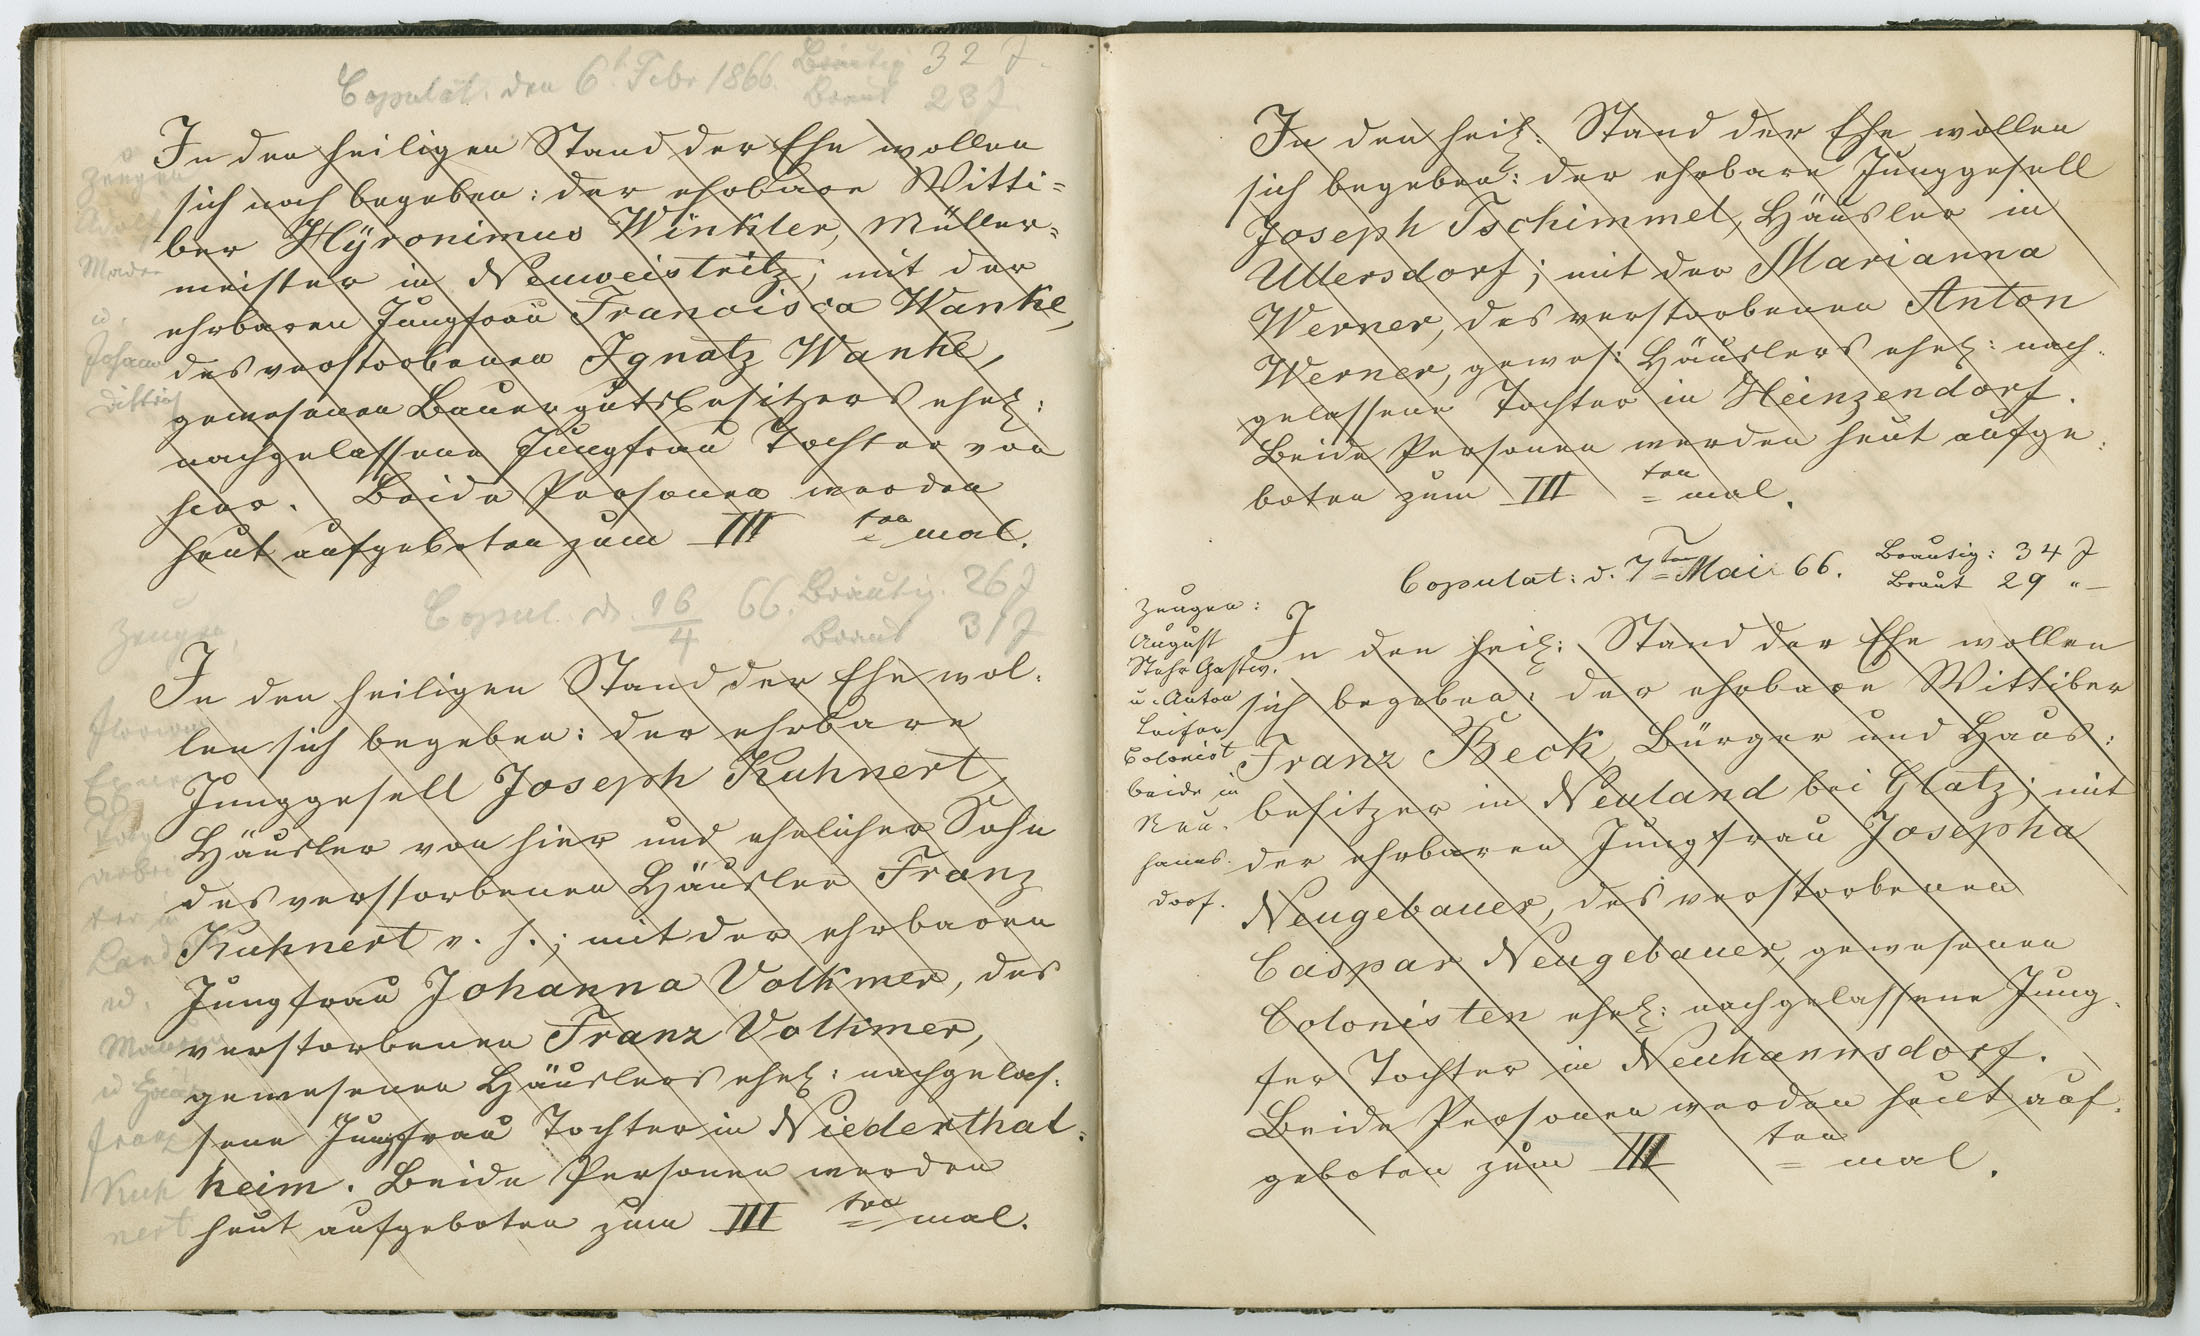 Copulat. den 6t Febr 1866. Bräutig 32 J.
Braut 23 J.
Zeugen
u.
Johann
Dittrich
In den heiligen Stand der Ehe wollen
sich noch begeben: der ehrbare Witti=
ber Hÿronimus Winkler, Müller=
meister in Neuweistritz; mit der
ehrbaren Jungfrau Francisca Wanke,
des verstorbenen Ignatz Wanke,
gewesenen Bauergutsbesitzers ehel:
nachgelassene Jungfrau Tochter von
hier. Beide Personen werden
heut aufgeboten zum III ten mal.
Copul. d. 16/4 66. Bräutig. 26 J
Braut 31 J
Zeugen
Florian
in
Land
u.
Franz
Kuh
nert
In den heiligen Stand der Ehe wol=
len sich begeben: der ehrbare
Junggesell Joseph Kuhnert,
Häusler von hier und ehelicher Sohn
des verstorbenen Häusler Franz
Kuhnert v. h.; mit der ehrbaren
Jungfrau Johanna Volkmer, des
verstorbenen Franz Volkmer,
gewesenen Häuslers ehel: nachgelas=
sene Jungfrau Tochter in Niederthal=
heim. Beide Personen werden
heut aufgeboten zum III ten mal.
In den heil: Stand der Ehe wollen
sich begeben: der ehrbare Junggesell
Joseph Tschimmel, Häusler in
Ullersdorf; mit der Marianna
Werner, des verstorbenen Anton
Werner, gewes: Häuslers ehel: nach=
gelassene Tochter in Heinzendorf.
Beide Personen werden heut aufge=
boten zum III ten mal.
Copulat: d. 7ten Mai 66. Bräutig: 34 J
Braut 29 "
Zeugen:
August
Stehr Gastw.
u. Anton
Colonist
beide in
Neu=
hanns=
dorf.
In den heil: Stand der Ehe wollen
sich begeben: der ehrbare Wittiber
Franz Beck, Bürger und Haus=
besitzer in Neuland bei Glatz; mit
der ehrbaren Jungfrau Josepha
Neugebauer, des verstorbenen
Caspar Neugebauer, gewesenen
Colonisten ehel: nachgelassene Jung=
fer Tochter in Neuhannsdorf.
Beide Personen werden heut auf=
geboten zum III ten mal.